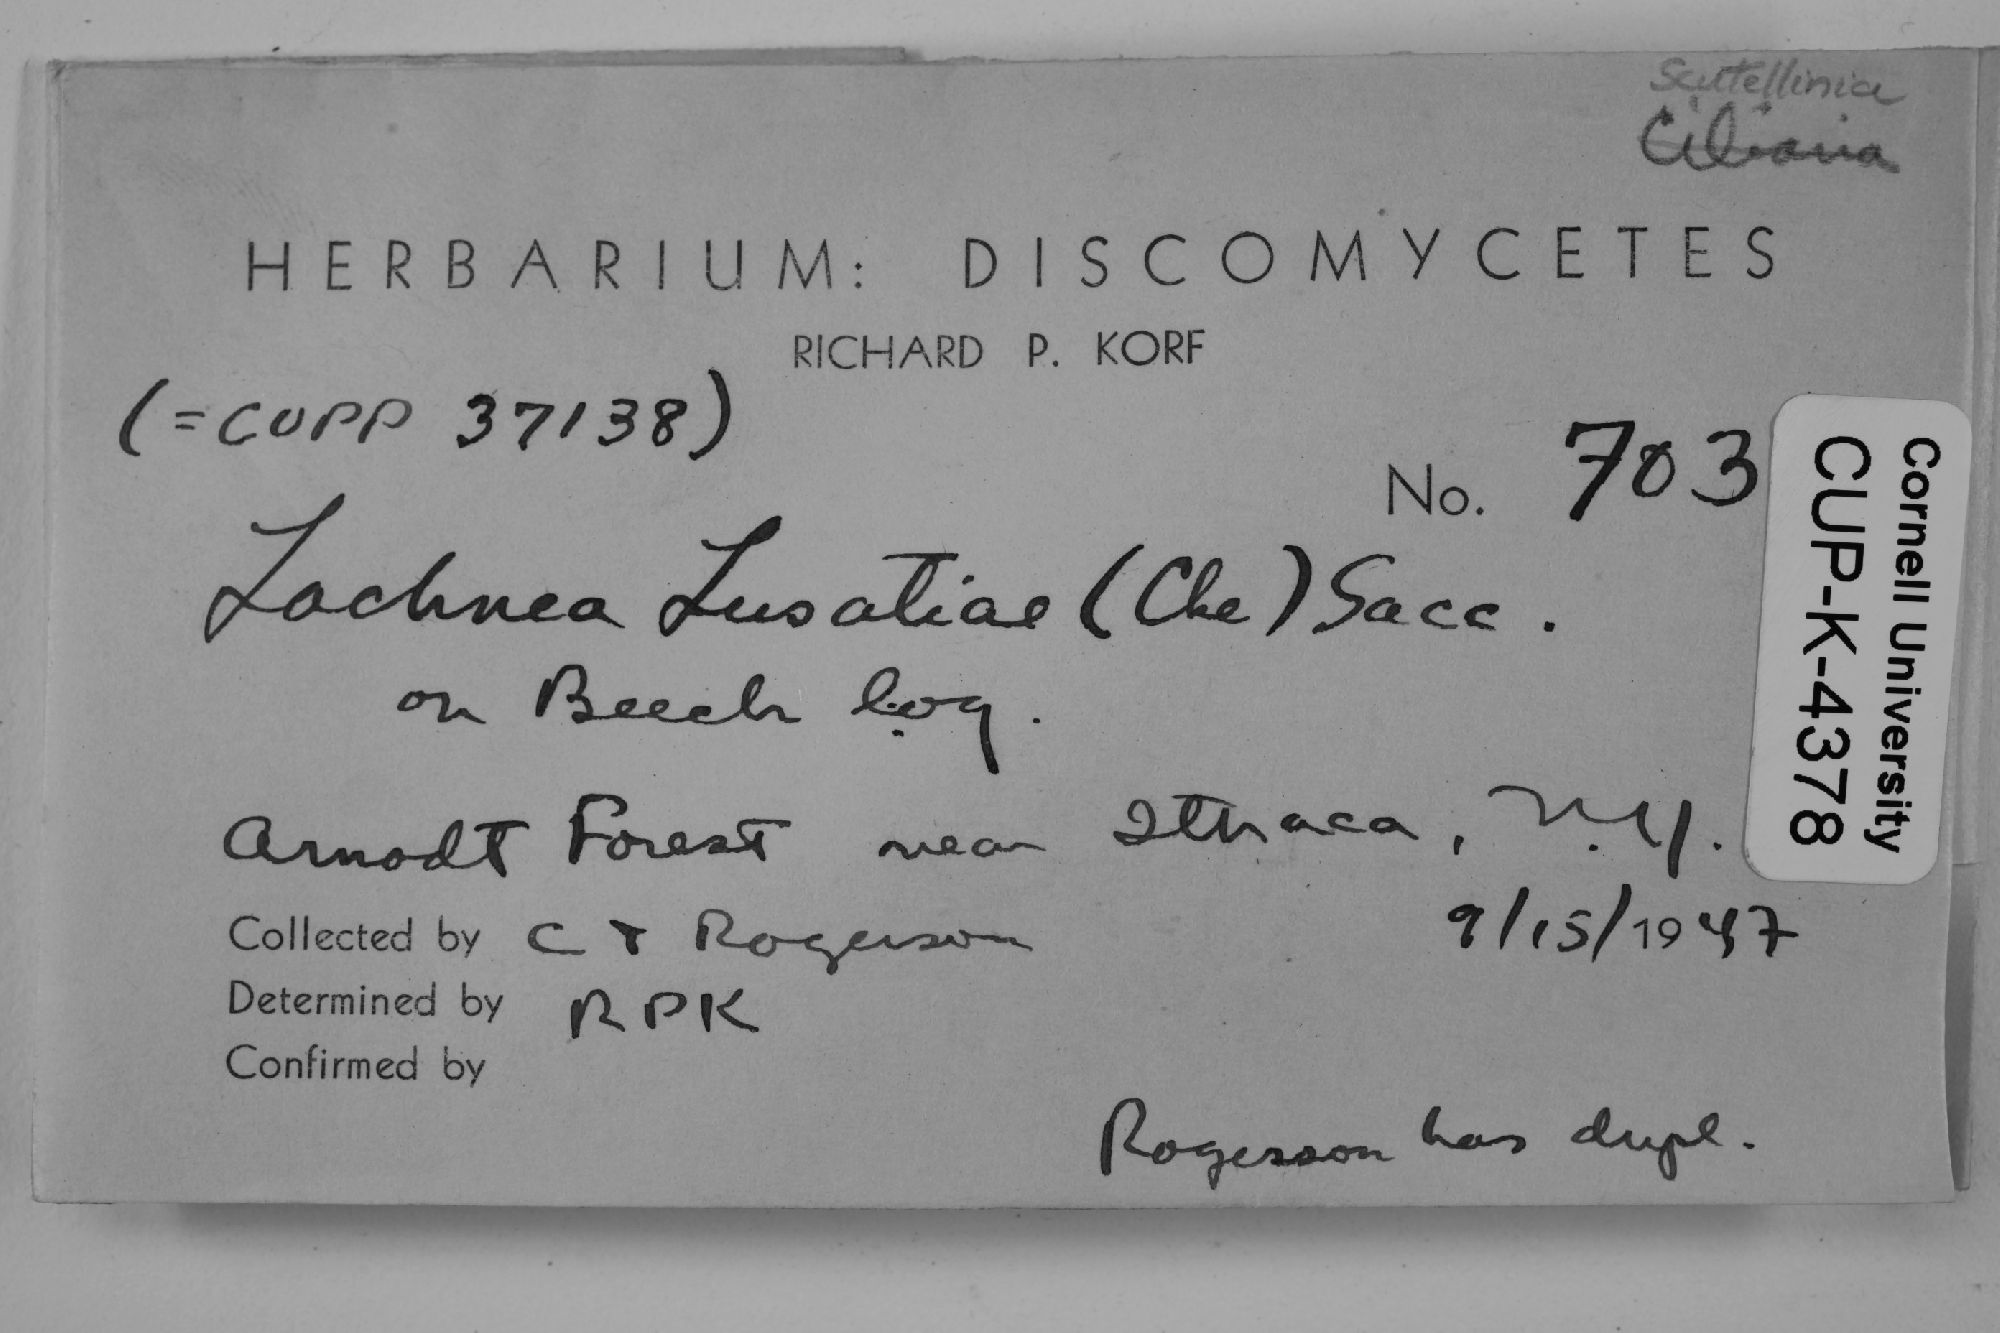 Scutellinia
Ciliaria
HERBARIUM: DISCOMYCETES
RICHARD P. KORF
(=CUPP 37138)
No. 703
Lachnea Lusatiae (Cke) Sacc.
on Beech log.
Arnodt Forest near Ithaca, N.Y.
9/15/1947
Collected by C T Rogerson
Determined by RPK
Confirmed by
Rogerson has dupl.
Cornell University
CUP-K-4378